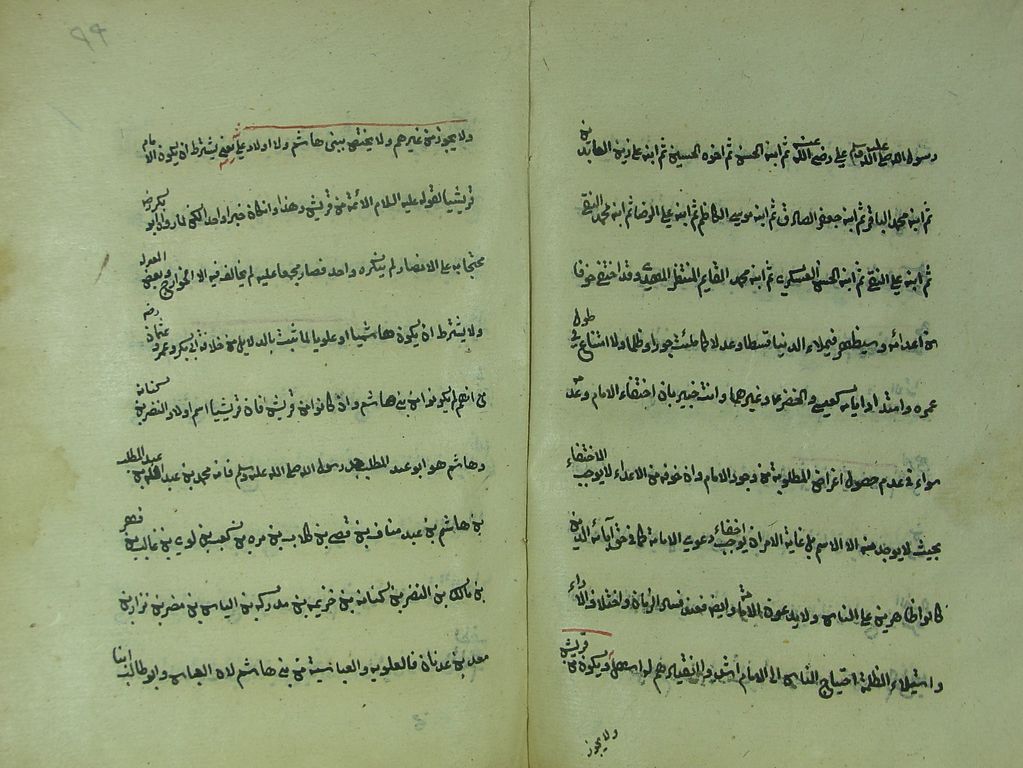 رسول الله صلى الله عليه وسلم علي رضي الله عنه ثم ابنه الحسن ثم اخوه الحسين ثم ابنه علي زين العابدين
ثم ابنه محمد الباقر ثم ابنه جعفر الصادق ثم ابنه موسى الكاظم ثم ابنه علي الرضا ثم ابنه محمد التقي
ثم ابنه علي النقي ثم ابنه الحسن العسكري ثم ابنه محمد القايم المنتظر المهدي وقد اختفى خوفا
من اعدائه وسيظهر فيملاء الدنيا قسطا وعدلا كما ملئت جورا وظلما ولا امتناع في طول
عمره وامتداد ايامه كعيسى والخضر عم وغيرهما وانت خبير بان اختفاء الامام وعدمه
سواء في عدم حصول اغراض المطلوبة من وجود الامام وان خوفه من الاعداء لا يوجب الاختفاء
بحيث لا يوجد منه الا الاسم بل غاية الامر ان يوجب اخفاء دعوى الامامة كما في حق آبائه الذين
كانوا ظاهرين على الناس ولا يدعون الامامة وايضا فعند فساد الزمان واختلاف الآراء
واستيلاء الظلمة احتياج الناس الى الامام اشد وانقيادهم له اسهل ويكون من قريش
ولا يجوز
٩٩
ولا يجوز من غيرهم ولا يختص ببني هاشم ولا اولاد علي يعني يشترط ان يكون الامام
قريشيا لقوله عليه السلام الائمة من قريش وهذا وان كان خبرا واحدا لكن لما رواه ابو بكر رضي
محتجا به على الانصار لم ينكره واحد فصار مجمعا عليه لم يخالف فيه الا الخوارج وبعض المعتزلة
ولا يشترط ان يكون هاشميا او علويا لما ثبت بالدلايل من خلافة ابي بكر وعمر وعثمان رضه
مع انهم لم يكونوا من بني هاشم وان كانوا من قريش فان قريشيا اسم اولاد النضر بن كنانة
وهاشم هو ابو عبد المطلب جد رسول الله صلى الله عليه وسلم فانه محمد بن عبد الله بن عبد المطلب
بن هاشم بن عبد مناف بن قصي بن كلاب بن مره بن كعب بن لوي بن غالب بن فهر
بن مالك بن النضر بن كنانه بن خزيمه بن مدركه بن الياس بن مضر بن نزار بن
معد بن عدنان فالعلوية والعباسية من بني هاشم لان العباس وابو طالب ابنا